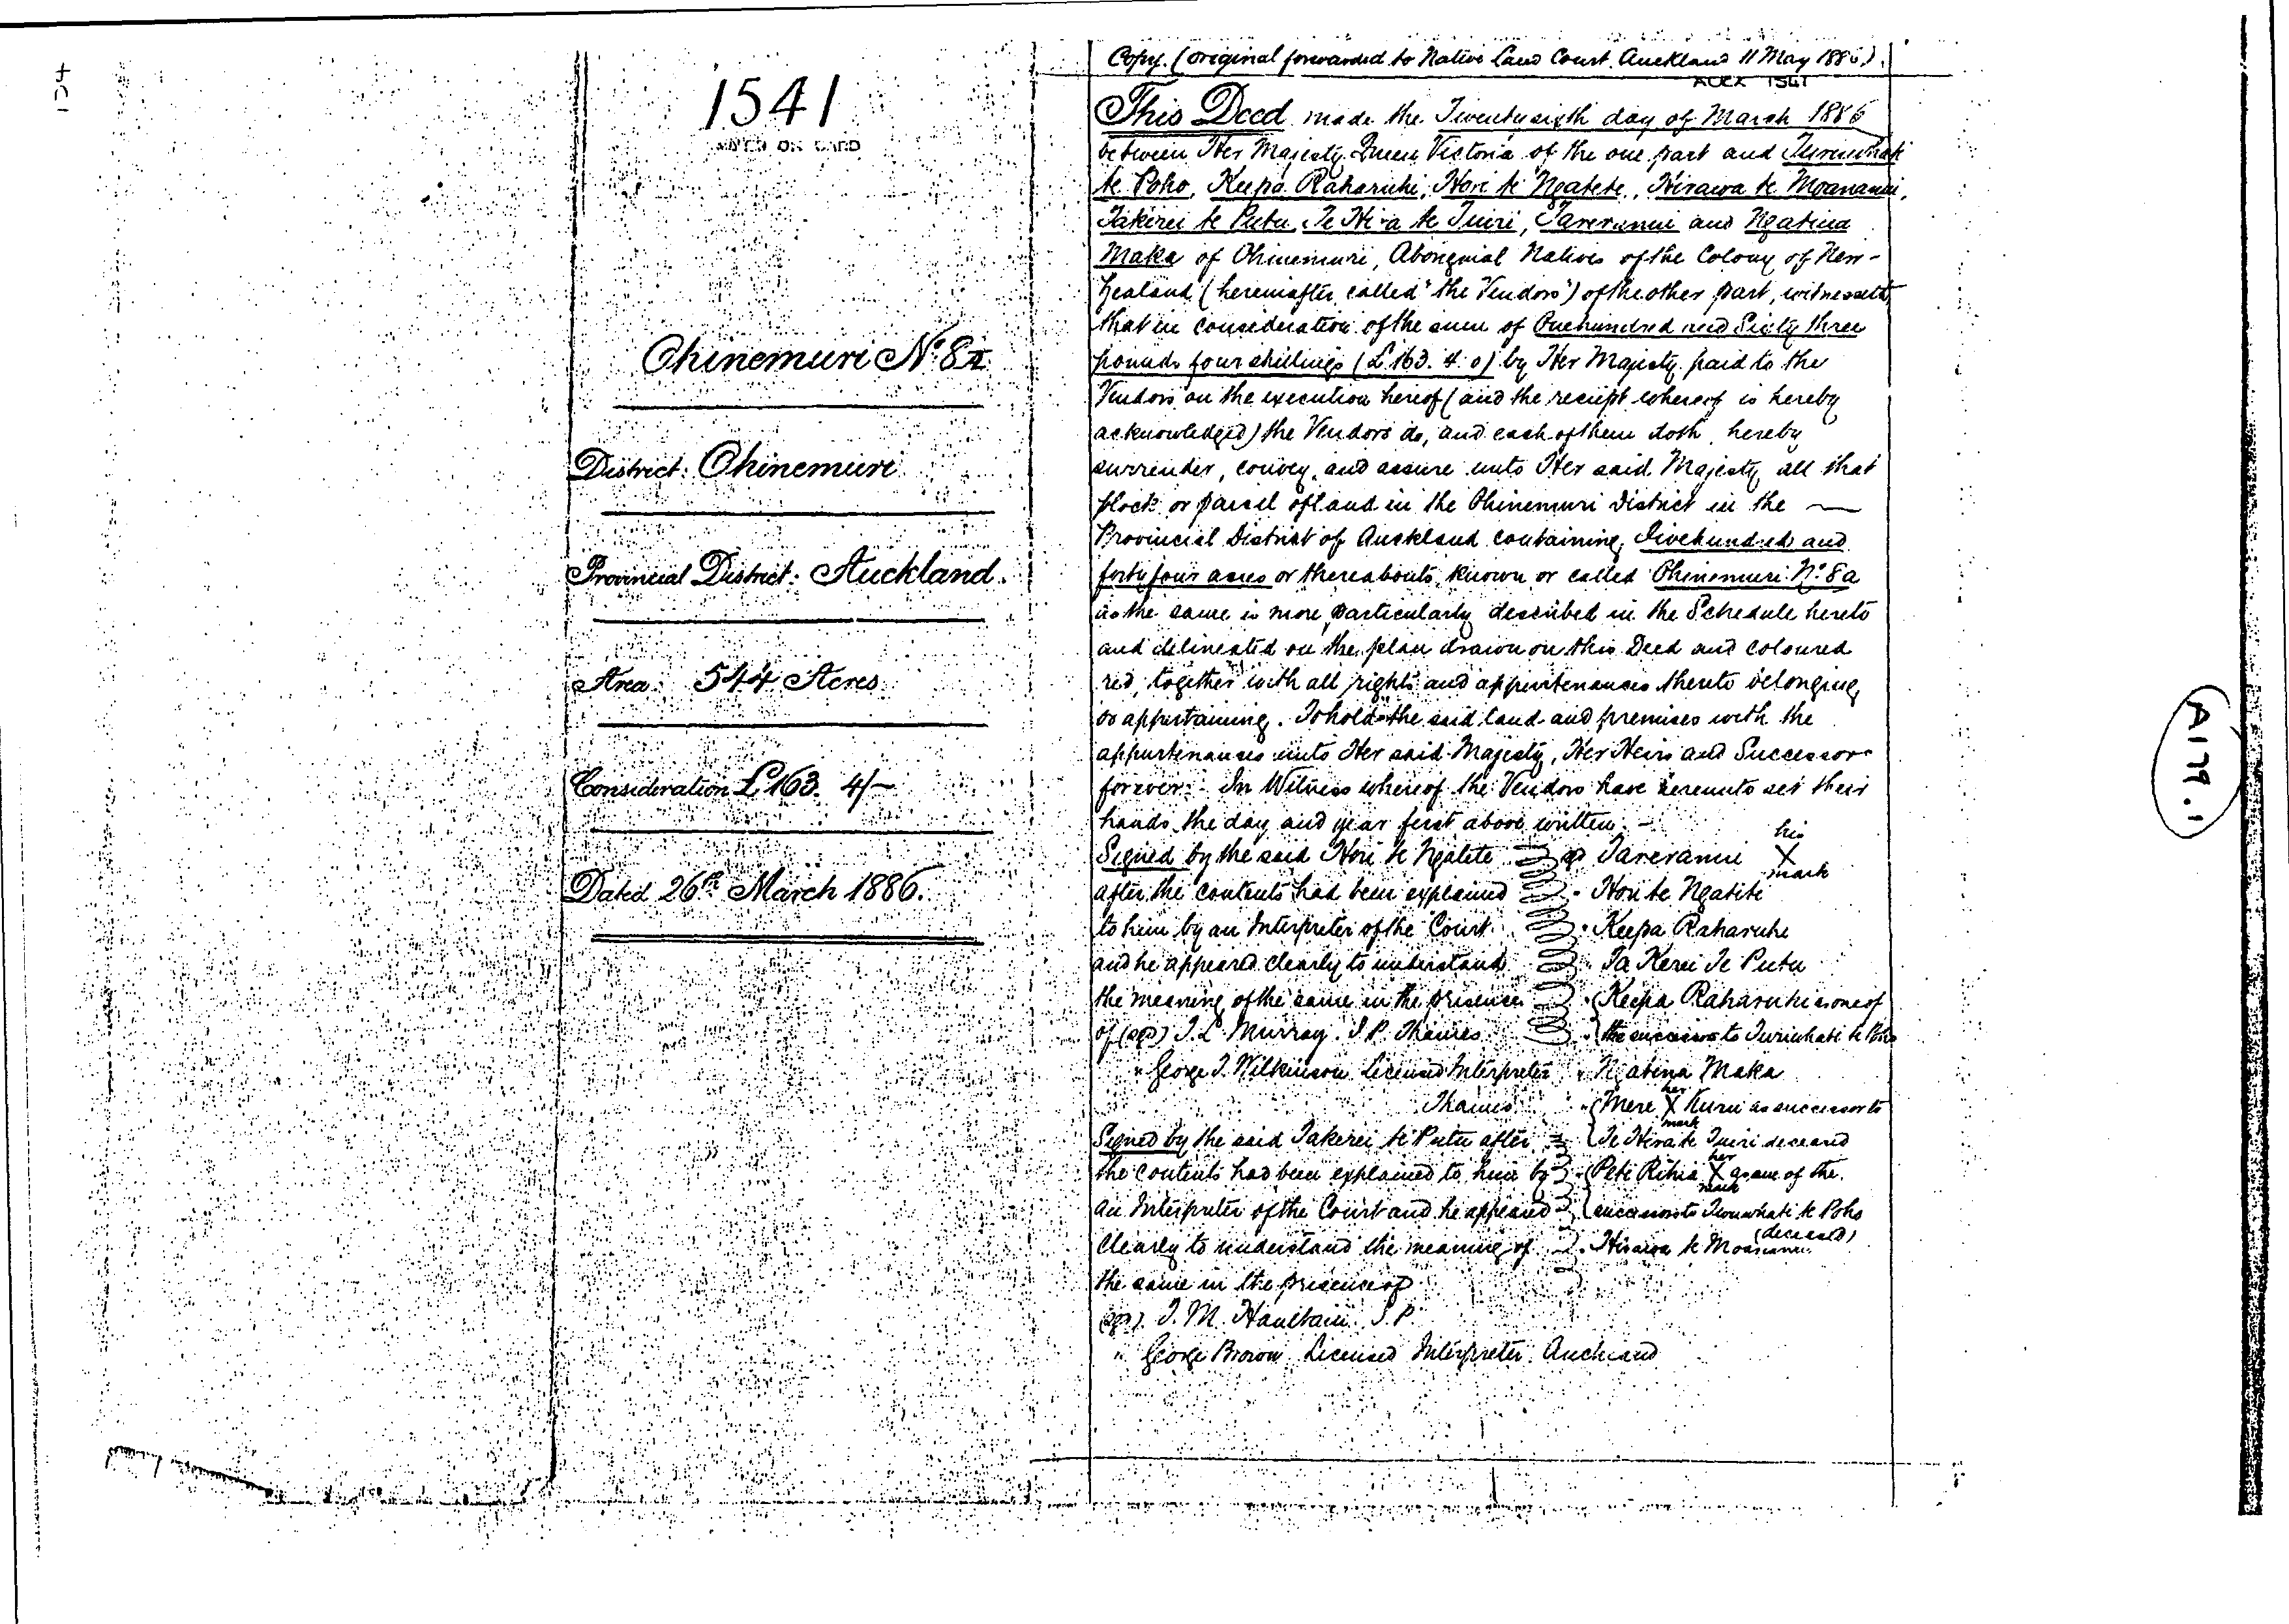 154
1541
NOTED ON CARD
Ohinemuri No. 8a
District: Ohinemuri
Provincial District: Auckland.
Area: 544 Acres
Consideration £163. 4/-
Dated 26th March 1886.
Copy. (original forwarded to Native Land Court. Auckland 11 May 1886).
AUCK 1541
This Deed made the Twentysixth day of March 1886
between Her Majesty Queen Victoria of the one part and Turuwhati
te Poho, Keepa Raharuhi, Hori te Ngatete, Hirawa te Moananui,
Takerei te Putu, Te Hira te Tuiri, Tareranui and Ngatina
Maka of Ohinemuri, Aboriginal Natives of the Colony of New-
Zealand (hereinafter called "the Vendors") of the other part, witnesseth
that in consideration of the sum of Onehundred and Sixty three
pounds four shillings (£163. 4. 0) by Her Majesty paid to the
Vendors on the execution hereof (and the receipt whereof is hereby
acknowledged) the Vendors do, and each of them doth, hereby
surrender, convey, and assure unto Her said Majesty all that
block or parcel of land in the Ohinemuri District in the
Provincial District of Auckland containing, Fivehundred and
forty four acres or thereabouts, known or called Ohinemuri No. 8a
as the same is more particularly described in the Schedule hereto
and delineated on the plan drawn on this Deed and coloured
red, together with all rights and appurtenances thereto belonging,
or appertaining. To hold the said land and premises with the
appurtenances unto Her said Majesty, Her Heirs and Successors
forever. In Witness whereof the Vendors have hereunto set their
hands the day and year first above written. -
Signed by the said Hori te Ngatete
after the contents had been explained
to him by an Interpreter of the Court
and he appeared clearly to understand
the meaning of the same in the presence
of (sgd) J. L. Murray. J.P. Thames
" George T. Wilkinson Licensed Interpreter
Thames
Tareranui his X mark
" Hori te Ngatete
" Keepa Raharuhi
" Ta Kerei Te Putu
" Keepa Raharuhi as one of
the successors to Turuwhati te Poho
" Ngatina Maka
" Mere her X mark Kuru as successor to
Te Hira te Tuiri deceased
" Pete Rihia her X mark as one of the
successors to Turuwhati te Poho
(deceased)
" Hirawa te Moananui
Signed by the said Takerei te Putu after
the contents had been explained to him by
an Interpreter of the Court and he appeared
clearly to understand the meaning of
the same in the presence of
(sgd) T. M. Haultain. J.P.
" George Brown Licensed Interpreter. Auckland
A179.1